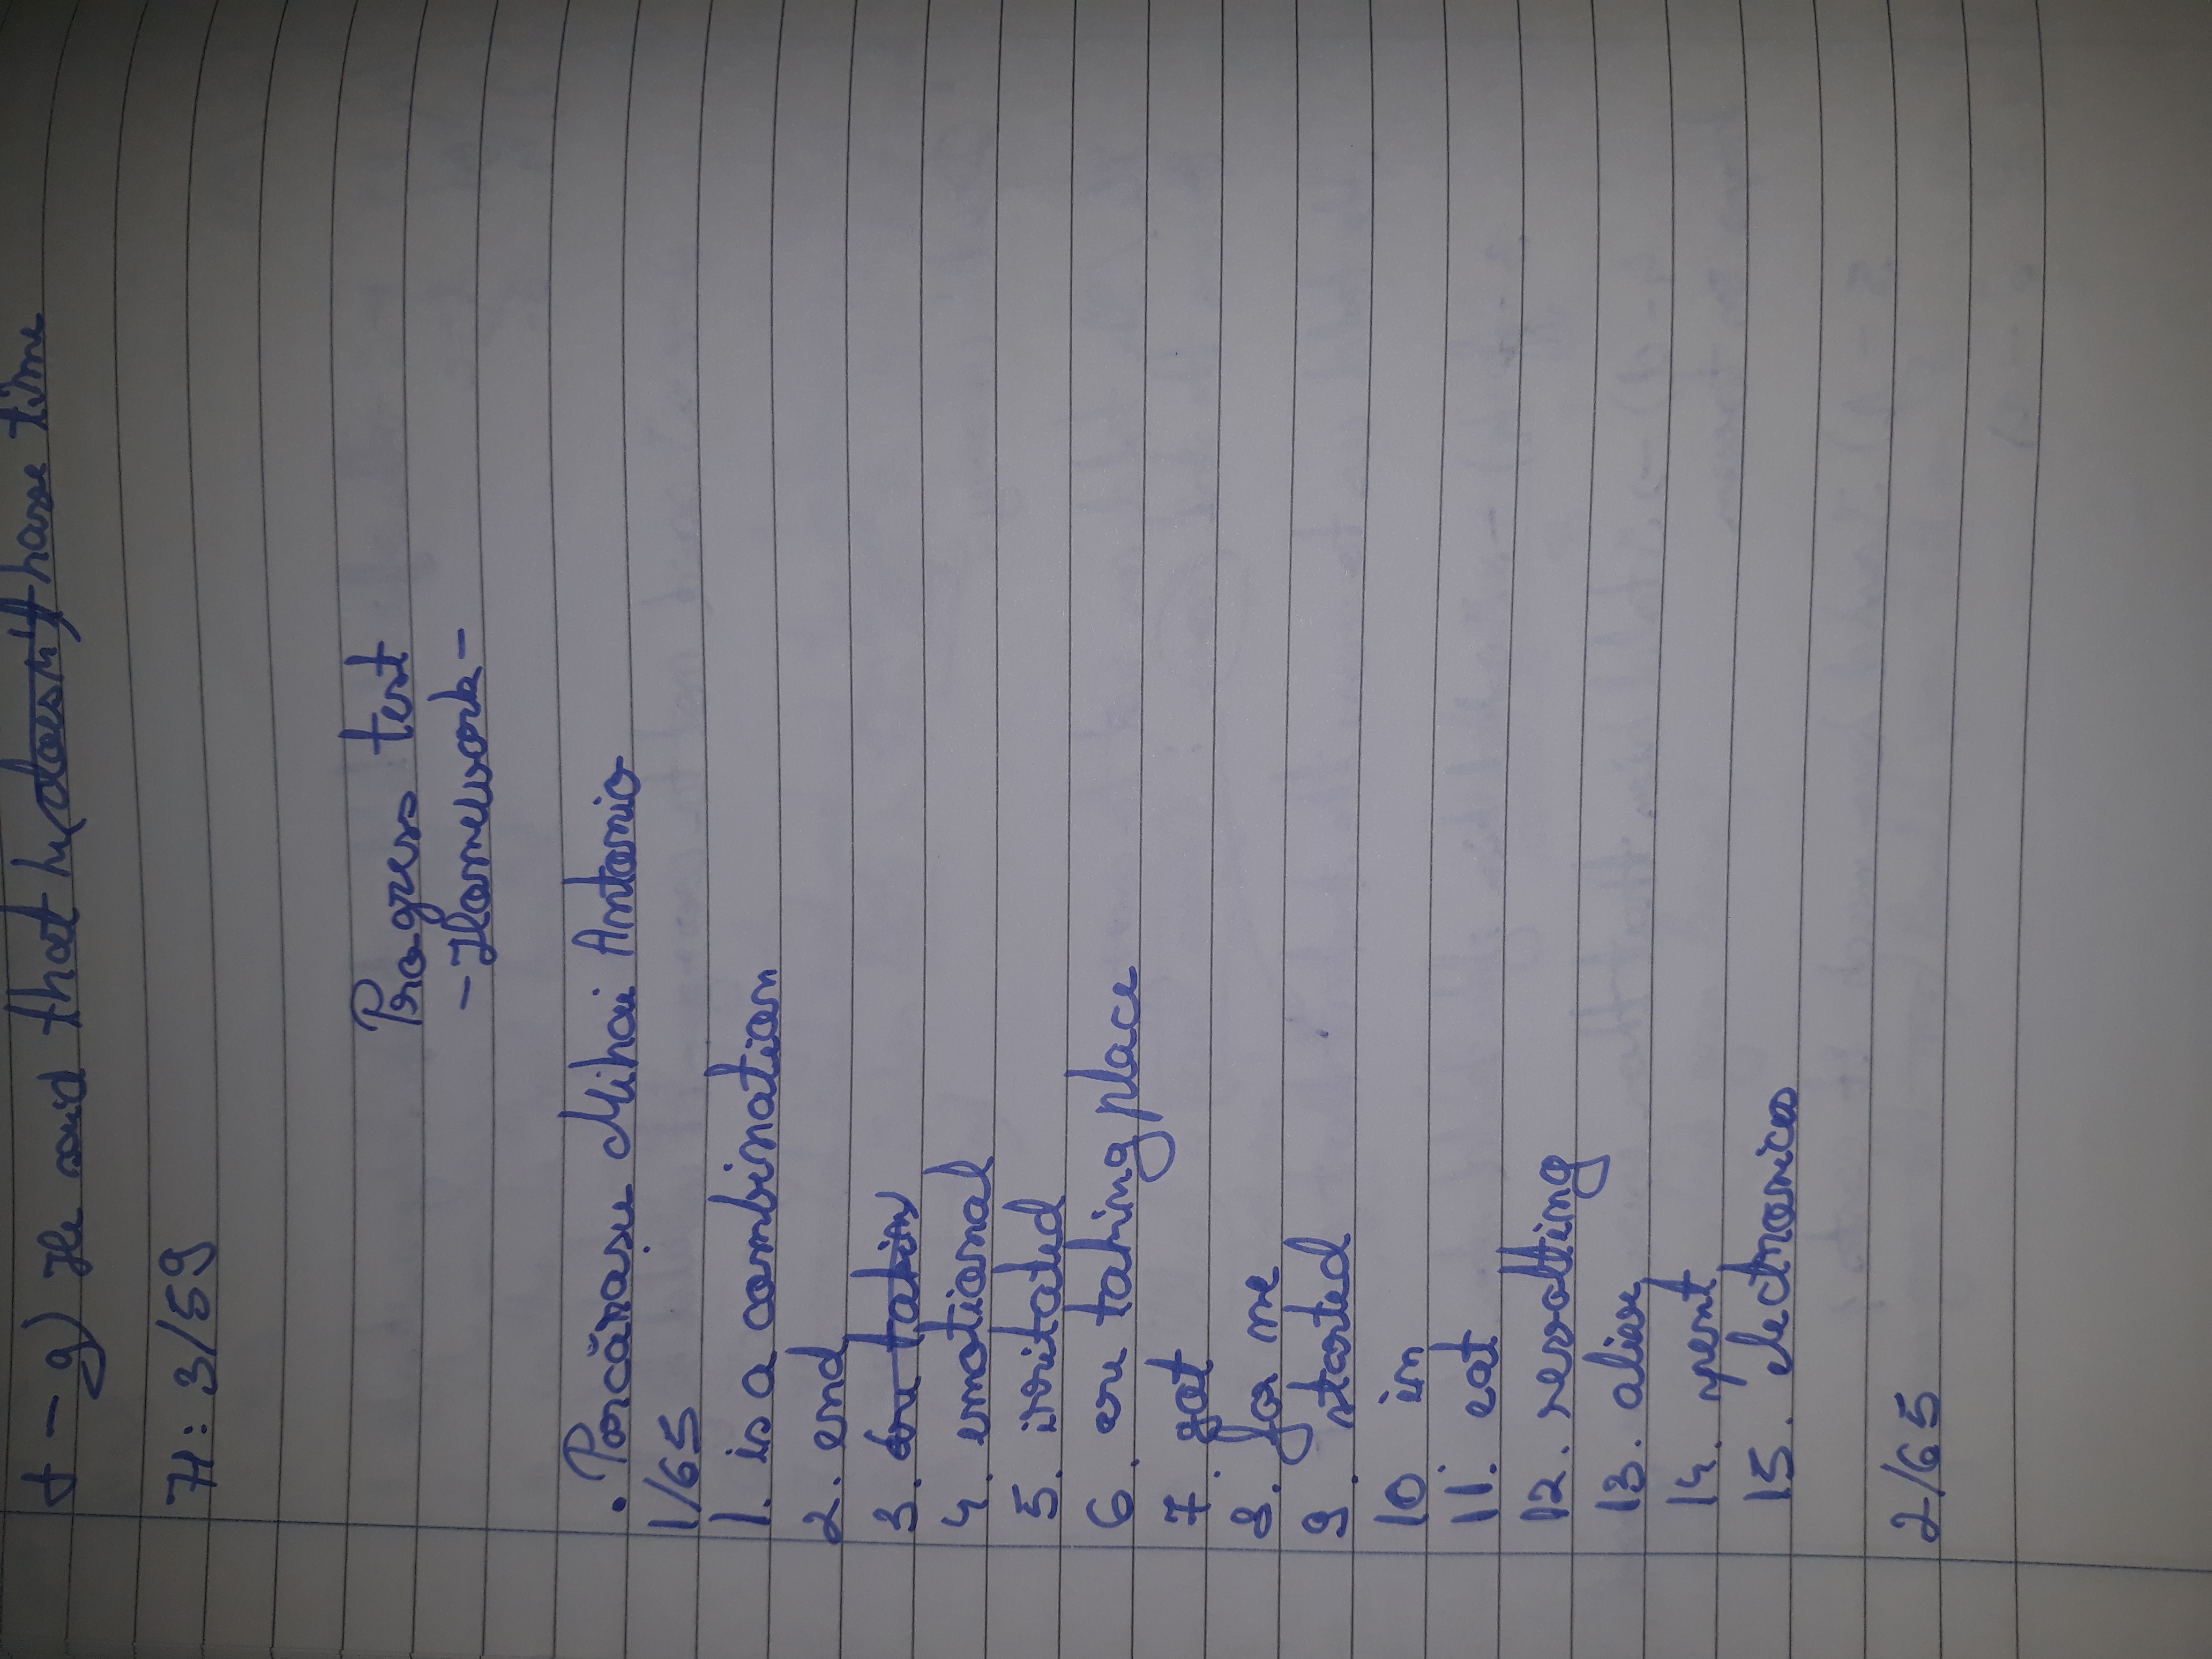 f - g) He said that he doesn't have time
H: 3/59
Progress test
- Homework -
. Porcărasu Mihai Antonio
1/65
1. is a combination
2. end
3. are takin
4. emotional
5. irritated
6. are taking place
7. got
8. for me
9. started
10 in
11. eat
12. revolting
13. alive
14. spent
15. electronics
2/65